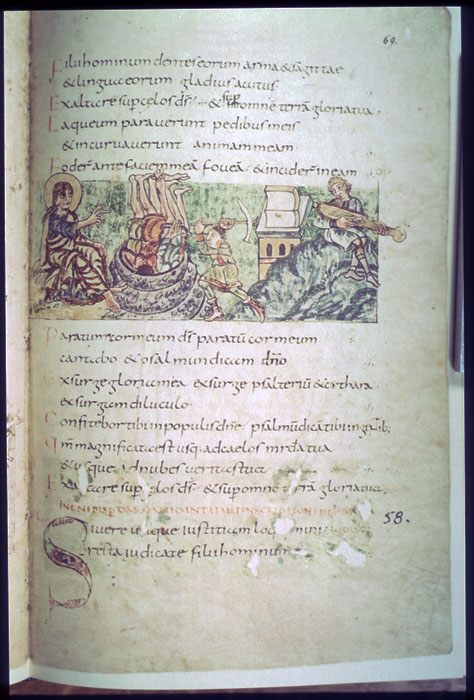 69.
Filii hominum dentes eorum arma & sagittae
& lingua eorum gladius acutus
Exaltare sup celos ds & sup omnē terrā gloria tua
Laqueum paraverunt pedibus meis
& incurvaverunt animam meam
Foder ante faciem meā foveā & incider in eam
Paratum cor meum ds paratū cor meum
cantabo & psalmum dicam dño
Exsurge gloria mea exsurge psalteriū & cithara
exsurgam diluculo
Confitebor tibi in populis dne psalmū dicā tibi in gentib;
Qm magnificata est usq ad caelos mrdia tua
& usque ad nubes veritas tua
Exaltare sup celos ds & sup omnē terrā gloria tua
58.
Si vere utique iustitiam loquimini
recta iudicate filii hominum